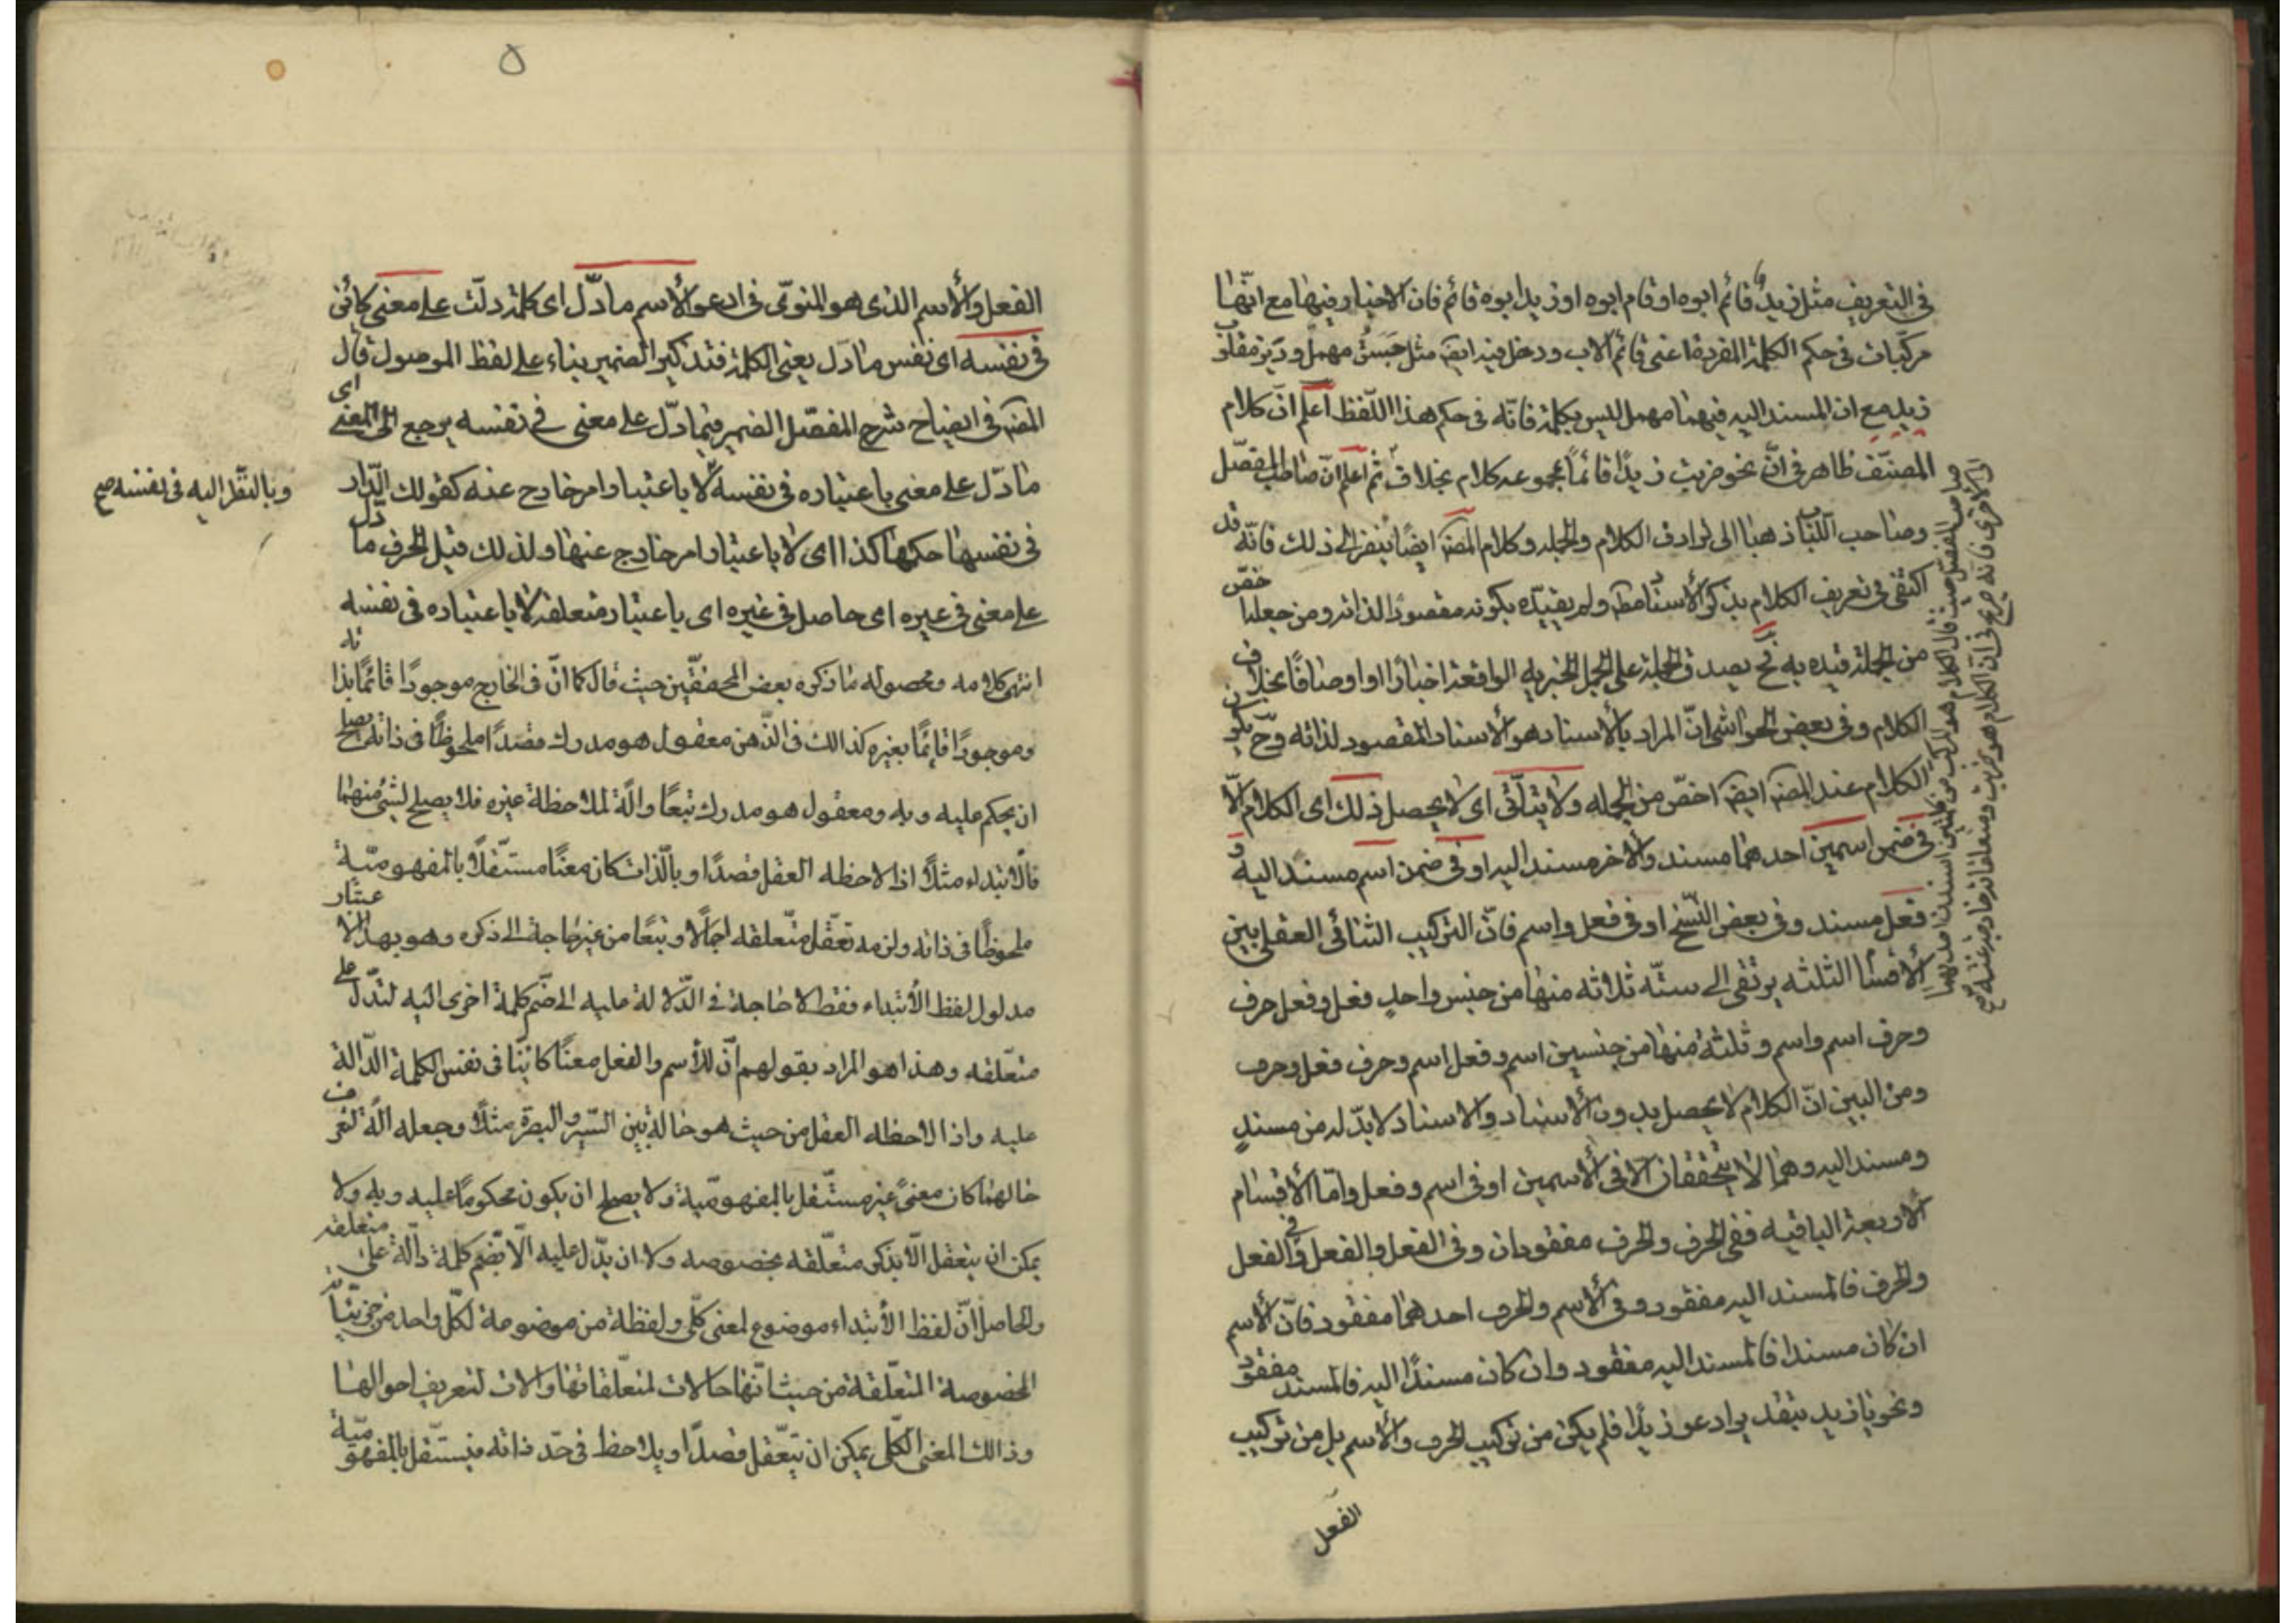 في التعريف مثل زيد قائم ابوه او قام ابوه او زيد ابوه قائم فان الاخبار فيها مع انّها
مركّبات فى حكم الكلمة المفردة اعنى قائم الاب ودخل فيه ايضَ مثل جَسَقٌ مهمل و دَيز مقلوب
زيد مع ان المسند اليه فيهما مهمل ليس بكلمة فانّه فى حكم هذا اللّفظ اعلم انّ كلام
المصنّف ظاهر فى انّ نحو ضربت زيدًا قائمًا بمجموعه كلام بخلاف ثم اعلم انّ صاحب المفصّل
وصاحب اللّباب ذهبا الى ترادف الكلام والجمله وكلام المصَ ايضًا ينظر الى ذلك فانّه قد
اكتفى فى تعريف الكلام بذكر الأسناد مطَ ولم يقيّده بكونه مقصودًا لذاته ومن جعله اخصّ
من الجملة قيّده به فح يصدق الجملة على الجمل الخبريه الواقعة اخبارًا او اوصافًا بخلاف
الكلام وفى بعض الحواشى انّ المراد بالأسناد هو الأسناد المقصود لذاته وحَ يكون
الكلام عند المصَ ايضَ اخصّ من الجمله ولا يتأتّى اى لا يحصل ذلك اى الكلام الّا
فى ضمن اسمين احدهما مسند والاخر مسند اليه او فى ضمن اسم مسند اليه و
فعل مسند وفى بعض النّسخ او فى فعل واسم فانّ التركيب الثنائى العقلى بين
الأقسام الثلثه يرتقى الى ستّه ثلاثه منها من جنس واحد فعل وفعل حرف
وحرف اسم واسم وثلثة منها من جنسين اسم وفعل اسم وحرف فعل وحرف
ومن البيّن انّ الكلام لا يحصل بدون الأسناد والاسناد لا بدّ له من مسندٍ
ومسند اليه وهما لا يتحققان الّا فى الأسمين او فى اسم وفعل وامّا الأقسام
الأربعة الباقيه ففى الحرف والحرف مفقودان وفى الفعل والفعل وفى الفعل
والحرف فالمسند اليه مفقود وفى الأسم والحرف احدهما مفقود فانّ الأسم
ان كان مسندا فالمسند اليه مفقود وان كان مسندًا اليه فالمسند مفقود
ونحو يا زيد بتقدير ادعو زيدًا فلم يكن من تركيب الحرف والأسم بل من تركيب
الفعل
صاحب المفصّل حيث قال الكلام هو المركب من كلمتين اسندت احديهما
الى الأخرى فانّه صريح فى انّ الكلام هو ضربت ومتعلقاته خارجة عنه صح
٥
الفعل والأسم الذى هو المنوىّ فى ادعو الأسم ما دلّ اى كلمة دلّت على معنى كائن
فى نفسه اى نفس ما دلّ يعنى الكلمة فتذكير الضمير بناء على لفظ الموصول قال
المصَ فى ايضاح شرح المفصّل الضمير فيما دلّ على معنى فى نفسه يرجع الى المعنى اى
ما دلّ على معنى باعتباره فى نفسه لا باعتبار امر خارج عنه كقولك الدّار
وبالنّظر اليه فى نفسه صح
فى نفسها حكمها كذا اى لا باعتبار امر خارج عنها ولذلك قيل الحرف ما دلّ
على معنى فى غيره اى حاصل فى غيره اى باعتبار متعلقه لا باعتباره فى نفسه
انتهى كلامه ومحصوله ما ذكره بعض المحققّين حيث قال كما انّ فى الخارج موجودًا قائمًا بذاته
وموجودًا قائمًا بغيره كذالك فى الذّهن معقول هو مدرك قصدًا ملحوظًا فى ذاته يصلح
ان يحكم عليه وبه ومعقول هو مدرك تبعًا والّة لملاحظة غيره فلا يصلح لشئٍ منهما
فالأبتداء مثلًا اذا لاحظه العقل قصدًا وبالّذات كان معنًا مستقّلًا بالمفهوميّة
ملحوظًا فى ذاته ولزمه تعقّل متّعلقه اجمالًا وتبعًا من غير حاجة الى ذكره وهو بهذا الاعتبار
مدلول لفظ الأبتداء فقط لا حاجة فى الدّلالة عليه الى ضّم كلمة اخرى اليه لتدلّ على
متعّلقه وهذا هو المراد بقولهم انّ للأسم والفعل معنًا كائنًا فى نفس الكلمة الدّالة
عليه واذا لاحظه العقل من حيث هو حالة بين السّير والبصرة مثلًا وجعله الّة لتعرف
حالهما كان معنىً غير مستّقل بالمفهوميّة ولا يصلح ان يكون محكومًا عليه وبه ولا
يمكن ان يتعقل الّا بذكر متعّلقه بخصوصه ولا ان يدّل عليه الّا بضّم كلمة دالّة على متعلقه
والحاصل انّ لفظ الأبتداء موضوع لمعنى كلّى ولفظة من موضوعة لكلّ واحد من جزئيّاته
المخصوصة المتعّلقة من حيث انّها حالات لمتعّلقاتها والات لتعريف احوالها
وذالك المعنى الكلّى يمكن ان يتعّقل قصدًا ويلاحظ فى حدّ ذاته فيستّقل بالمفهوميّة